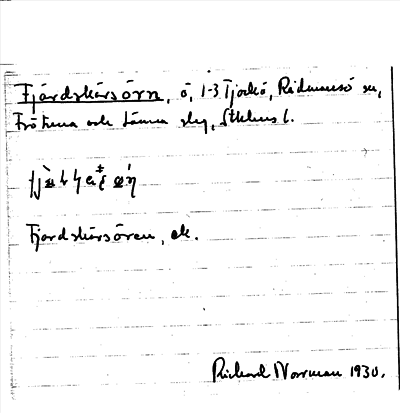 Fjärdskärsörn, ö, 1-3 Tjockö, Rådmansö sn,
Frötuna och Länna skg, Sthlms l.
Fjärdskärsören, ek.
Richard Norrman 1930.